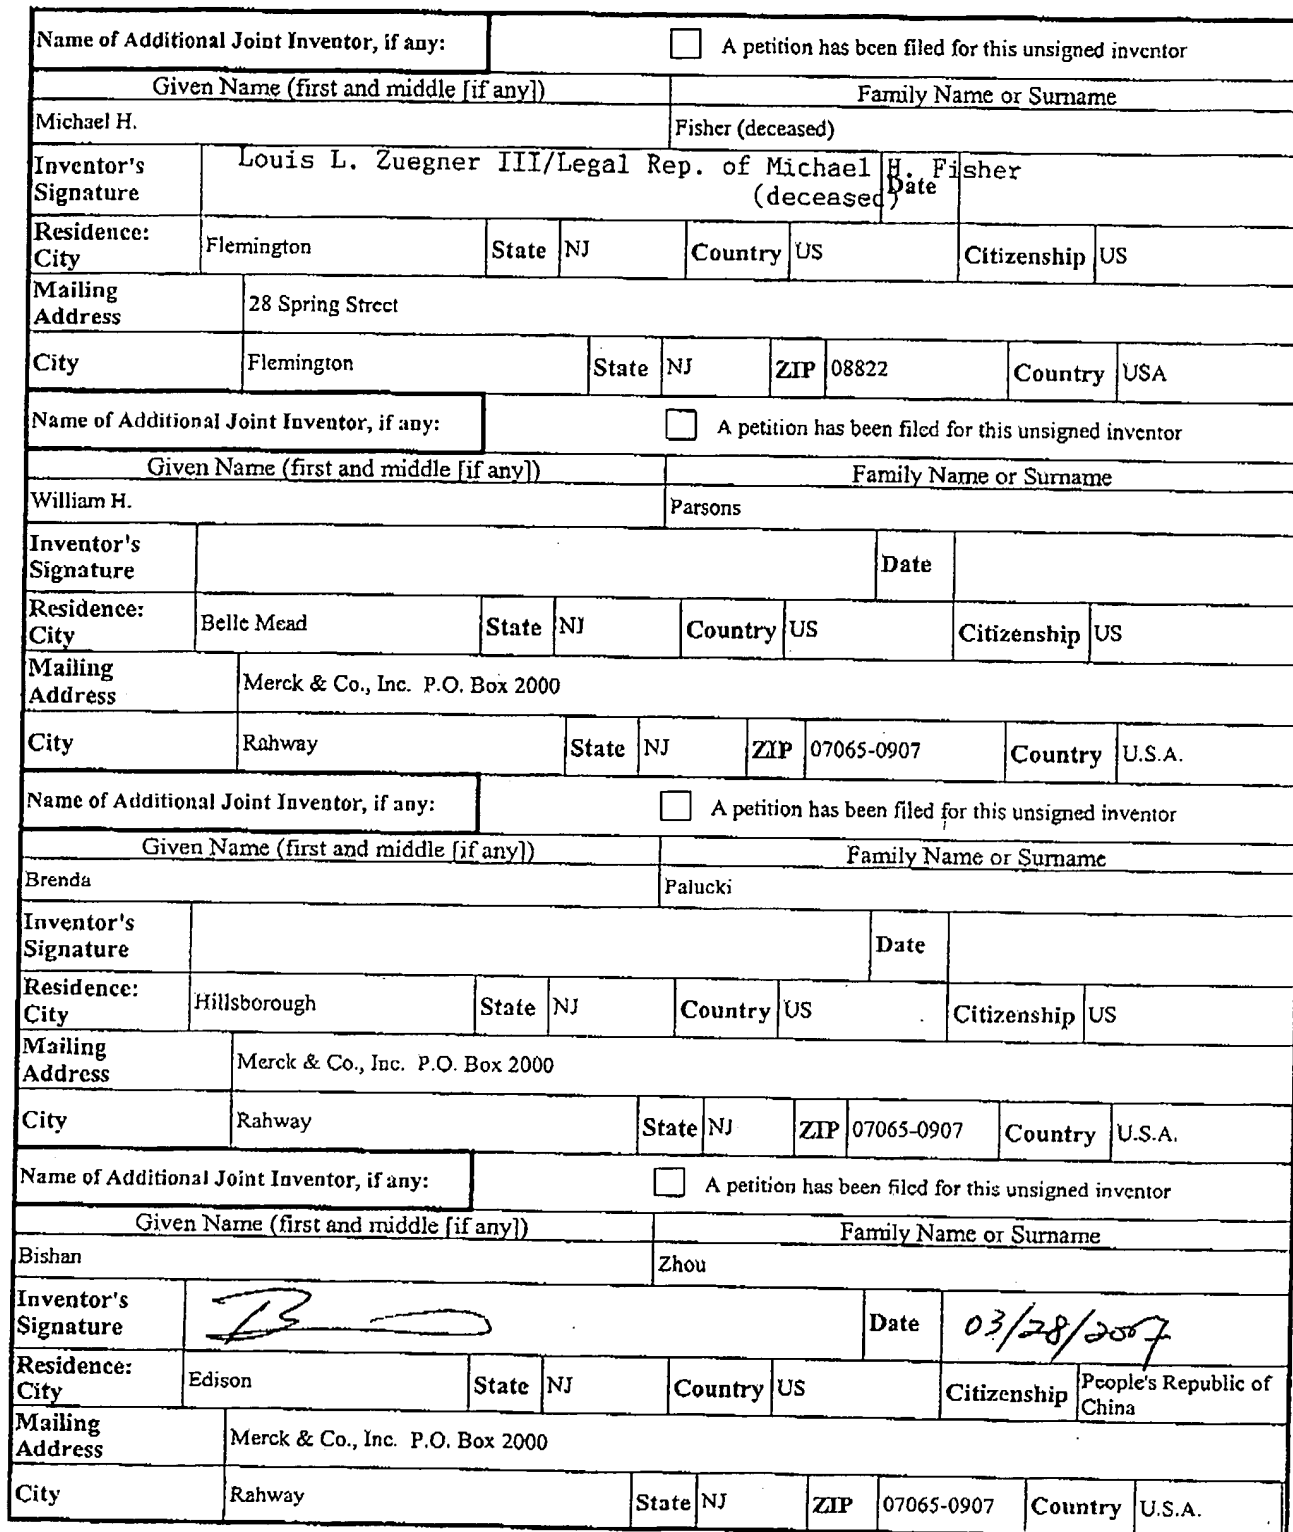 Name of Additional Joint Inventor, if any: A petition has been filed for this unsigned inventor
Given Name (first and middle [if any]) Family Name or Surname
Michael H. Fisher (deceased)
Inventor's Signature Louis L. Zuegner III/Legal Rep. of Michael H. Fisher (deceased) Date
Residence: City Flemington State NJ Country US Citizenship US
Mailing Address 28 Spring Street
City Flemington State NJ ZIP 08822 Country USA
Name of Additional Joint Inventor, if any: A petition has been filed for this unsigned inventor
Given Name (first and middle [if any]) Family Name or Surname
William H. Parsons
Inventor's Signature Date
Residence: City Belle Mead State NJ Country US Citizenship US
Mailing Address Merck & Co., Inc. P.O. Box 2000
City Rahway State NJ ZIP 07065-0907 Country U.S.A.
Name of Additional Joint Inventor, if any: A petition has been filed for this unsigned inventor
Given Name (first and middle [if any]) Family Name or Surname
Brenda Palucki
Inventor's Signature Date
Residence: City Hillsborough State NJ Country US Citizenship US
Mailing Address Merck & Co., Inc. P.O. Box 2000
City Rahway State NJ ZIP 07065-0907 Country U.S.A.
Name of Additional Joint Inventor, if any: A petition has been filed for this unsigned inventor
Given Name (first and middle [if any]) Family Name or Surname
Bishan Zhou
Inventor's Signature Date 03/28/2007
Residence: City Edison State NJ Country US Citizenship People's Republic of China
Mailing Address Merck & Co., Inc. P.O. Box 2000
City Rahway State NJ ZIP 07065-0907 Country U.S.A.